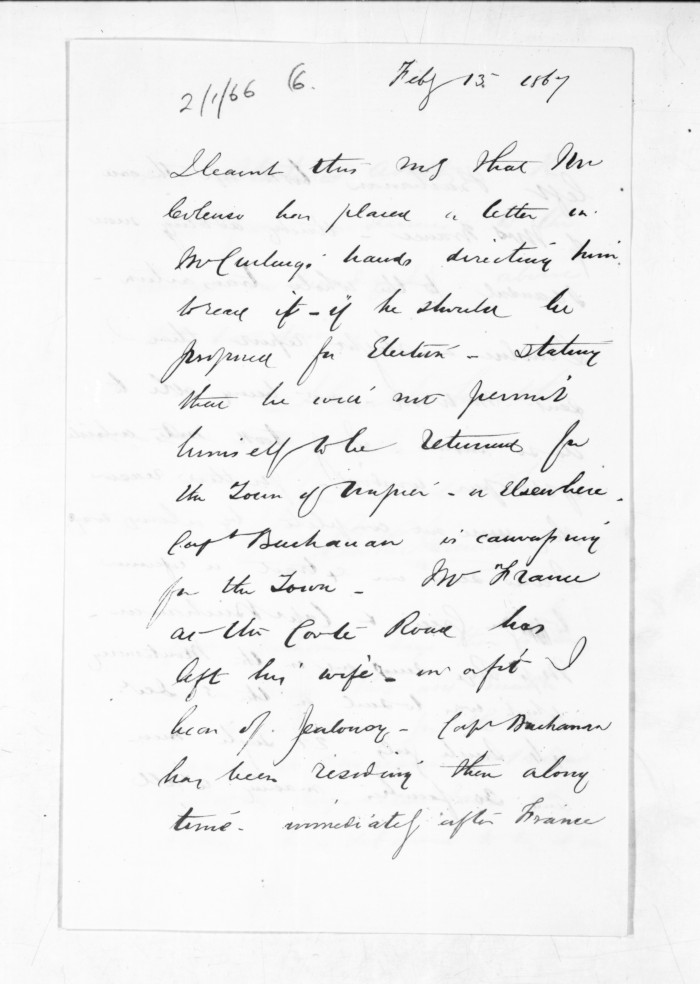 2/1/66 (6. Feby 13. 1867
I learnt this mg that Mr
Colenso has placed a letter in
Mr Curlings' hands directing him
to read it - if he should be
proposed for Election - stating
that he would not permit
himself to be returned for
the Town of Napier - or Elsewhere.
Capt Buchanan is canvassing
for the Town - Mr France
at the Coote Road has
left his wife - in a fit I
hear of Jealousy - Capt Buchanan
has been residing there along
time - immediately after France